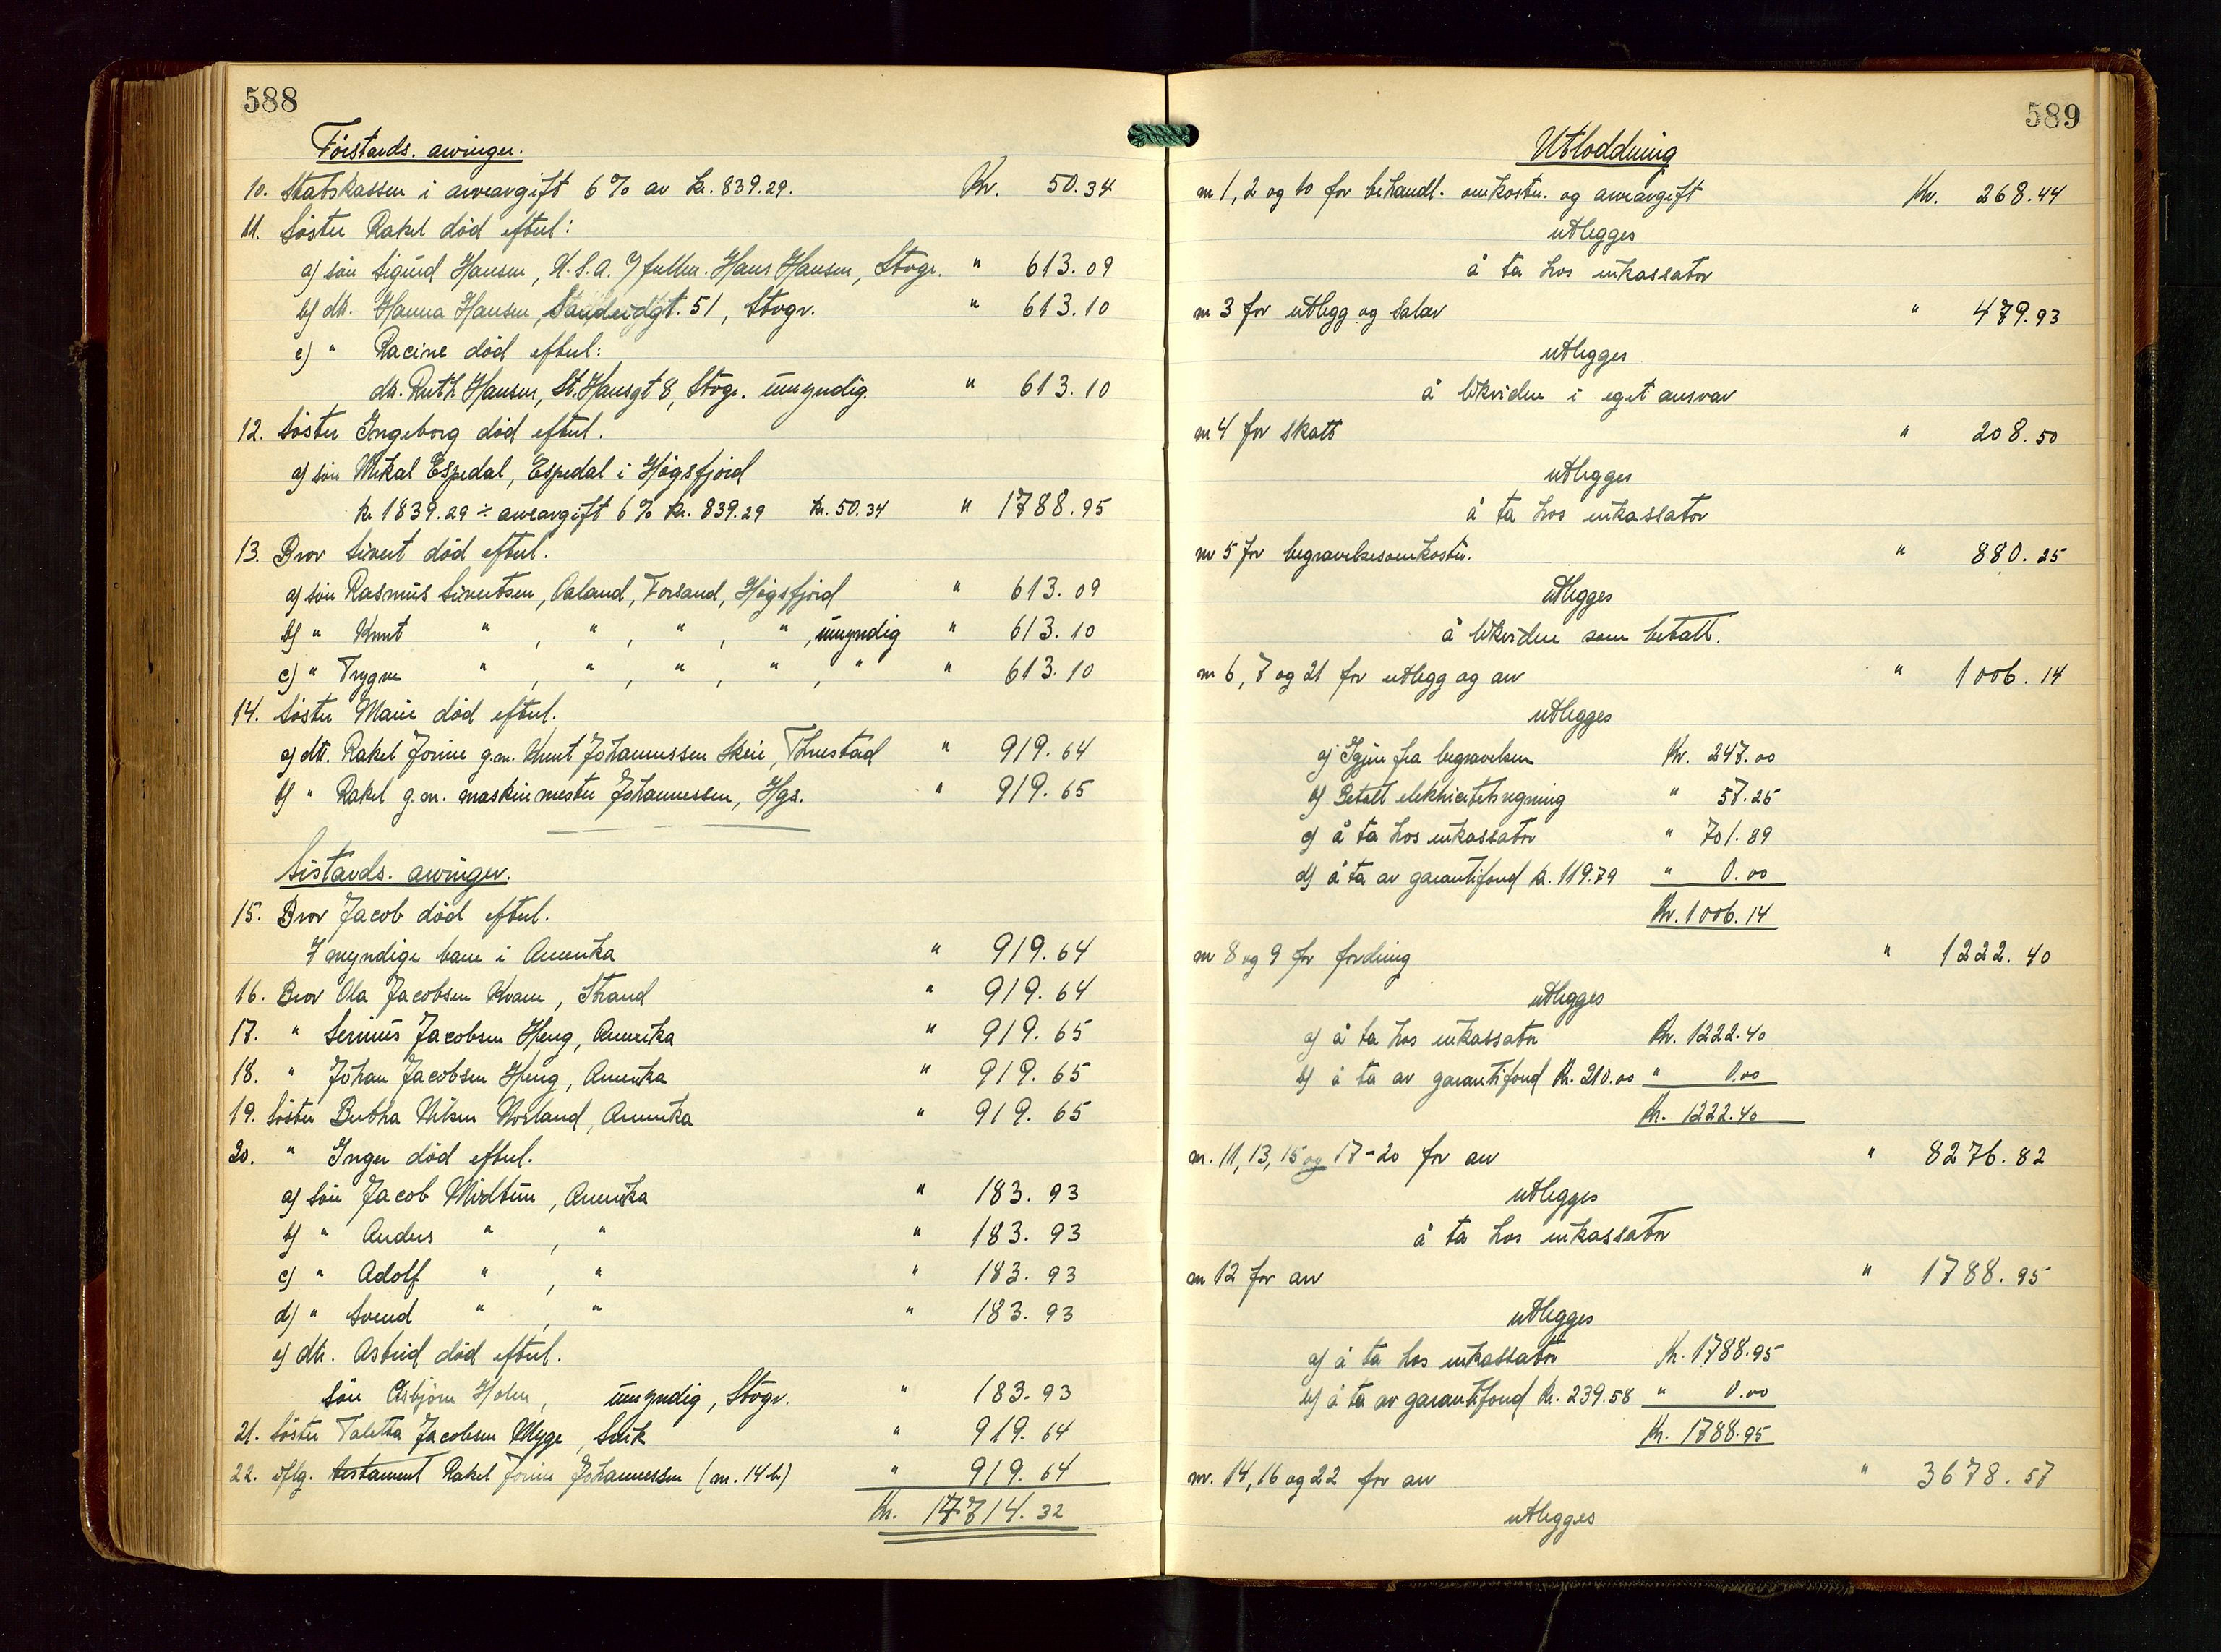 588
Förstands. arvinger.
10. Statskassen i arveavgift 6% av kr. 839.29. Kr. 50.34
11. Söster Rakel död efterl:
a) sön Sigurd Hansen, U.S.A. Hans Hansen, Stvgr. " 613.09
b) dtr. Hanna Hansen, Sandvedgt. 51, Stvgr. " 613.10
c) " Racine död efterl:
dtr. Ruth Hansen, St. Hansgt 8, Stvgr. umyndig. " 613.10
12. Söster Ingeborg död efterl.
a) sön Mikal Espedal, Espedal i Högsfjord
kr. 1839.29 ÷ arveavgift 6% kr. 839.29 kr. 50.34 " 1788.95
13. Bror Sivert död efterl.
a) sön Rasmus Sivertsen, Aaland, Forsand, Högsfjord " 613.09
b) " Knut " , " , " , " , umyndig " 613.10
c) " Trygve " , " , " , " , " " 613.10
14. Söster Marie död efterl.
a) dtr. Rakel Jorine g.m. Knut Johannessen Skeie, Thvestad " 919.64
b) " Rakel g.m. maskinmester Johannessen, Hgs. " 919.65
Sistands. arvinger.
15. Bror Jacob död efterl.
7 myndige barn i Amerika " 919.64
16. Bror Ola Jacobsen Kvam, Strand " 919.64
17. " Serinus Jacobsen Heng, Amerika " 919.65
18. " Johan Jacobsen Heng, Amerika " 919.65
19. Söster Bertha Nilsen Norland, Amerika " 919.65
20. " Inger död efterl.
a) sön Jacob Midtun, Amerika " 183.93
b) " Anders " , " " 183.93
c) " Adolf " , " " 183.93
d) " Svend " , " " 183.93
e) dtr. Astrid död efterl.
sön Asbjörn Holm, umyndig, Stvgr. " 183.93
21. Söster Taletta Jacobsen Myge, " 919.64
22. iflg. testament Rakel Jorine Johannessen (nr. 14 b) " 919.64
Kr. 17714.32
589
Utloddning
nr 1, 2 og 10 for behandl. omkostn. og arveavgift Kr. 268.44
utlegges
å ta hos inkassator
nr 3 for utlegg og salar " 479.93
utlegges
å likvidere i eget ansvar
nr 4 for skatt " 208.50
utlegges
å ta hos inkassator
nr 5 for begravelsesomkostn. " 880.25
utlegges
å likvidere som betalt.
nr 6, 7 og 21 for utlegg og arv " 1006.14
utlegges
a) Igjen fra begravelsen Kr. 247.00
b) Betalt elektricitetsregning " 57.25
c) å ta hos inkassator " 701.89
d) å ta av garantifond kr. 119.79 " 0.00
Kr. 1006.14
nr 8 og 9 for fordring " 1222.40
utlegges
a) å ta hos inkassator Kr. 1222.40
b) å ta av garantifond Kr. 210.00 " 0.00
Kr. 1222.40
nr. 11, 13, 15 og 17-20 for arv " 8276.82
utlegges
å ta hos inkassator
nr 12 for arv " 1788.95
utlegges
a) å ta hos inkassator Kr. 1788.95
b) å ta av garantifond Kr. 239.58 " 0.00
Kr. 1788.95
nr. 14, 16 og 22 for arv " 3678.57
utlegges